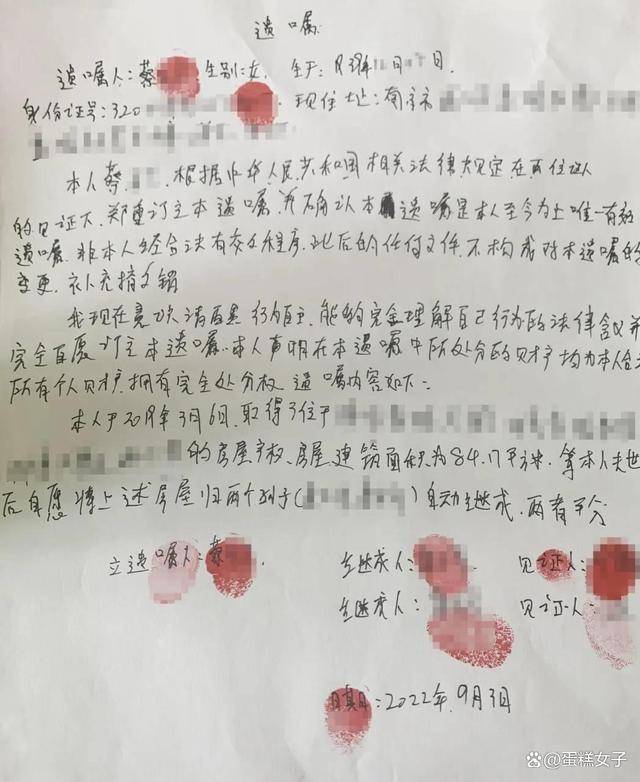 遗嘱
遗嘱人:蔡 性别:女 生于:1938年 月 日.
身份证号:320 现住址:南京市
本人蔡 .根据中华人民共和国相关法律规定在两位证人
的见证下,郑重订立本遗嘱,并确认本遗嘱是本人至今为止唯一有效
遗嘱.非本人经合法有效程序,此后的任何文件,不构成对本遗嘱的
变更.补充措
我现在意识清 行为自主.能够完全理解自己行为的法律含义并
完全自愿订立本遗嘱.本人声明在本遗嘱中所处分的财产均为本人合法
所有个人财产,拥有完全处分权.遗嘱内容如下:
本人于2018年3月6日,取得了位于
的房屋产权、房屋建筑面积为84.17平方米.等本人去世
后自愿将上述房屋归两个 子( )自动继成.两者平分
立遗嘱人:蔡 继成人: 见证人:
继成人: 见证人:
日期:2022年.9月3日
@蛋糕女子